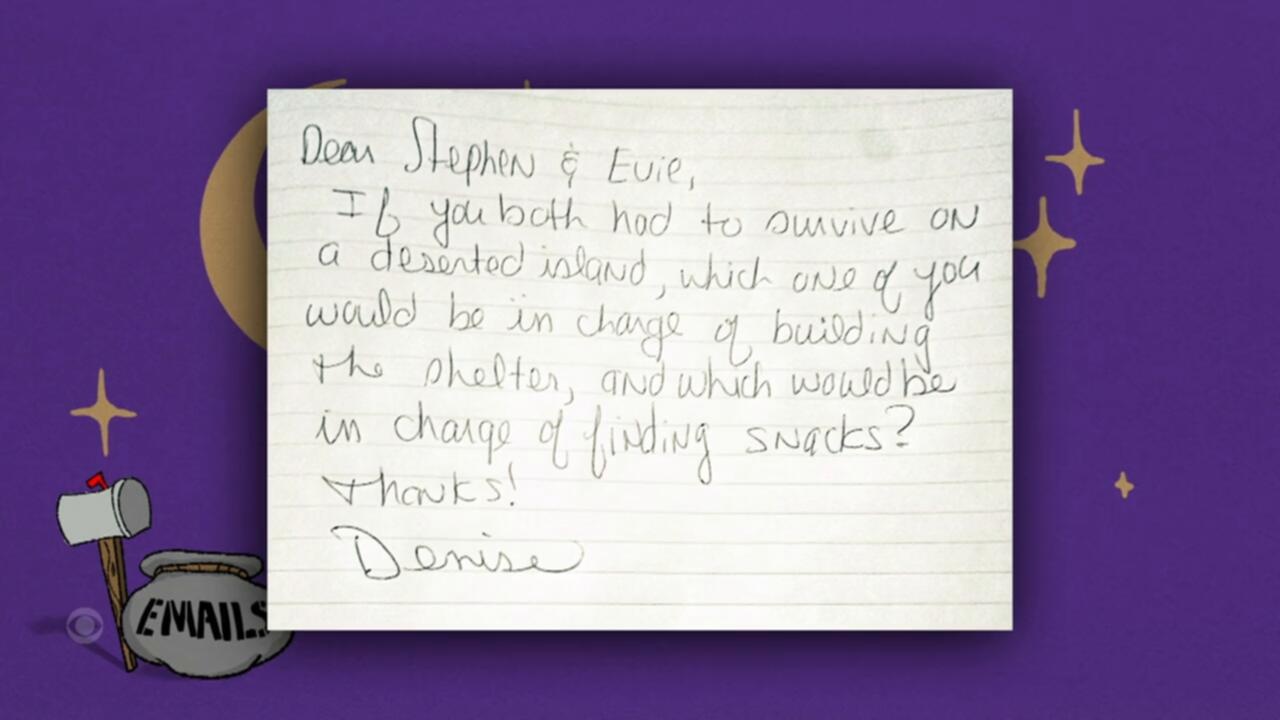 Dear Stephen & Evie,
If you both had to survive on
a deserted island, which one of you
would be in charge of building
the shelter, and which would be
in charge of finding snacks?
Thanks!
Denise
EMAILS